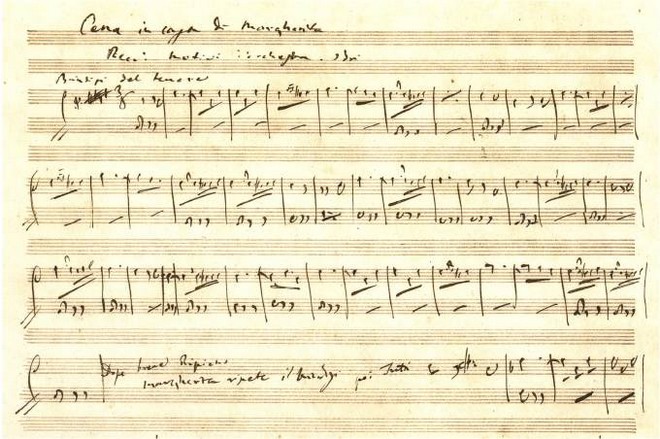 Cena in casa di Margherita
motivi orchestra
Brindisi del tenore
Dopo breve Ripieno
Margherita ripete il brindisi poi Tutti